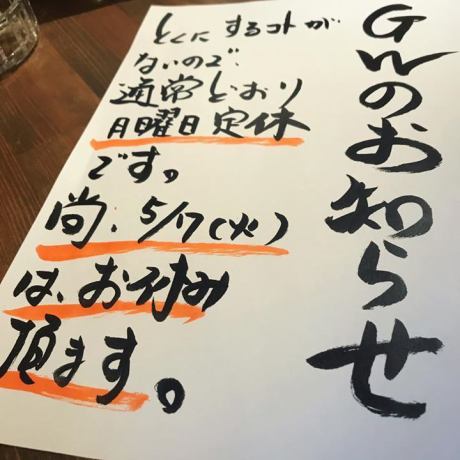 GWのお知らせ
とくにするコトが
ないので
通常どおり
月曜日定休
です。
尚、5/17(火)
は、お休み
頂ます。